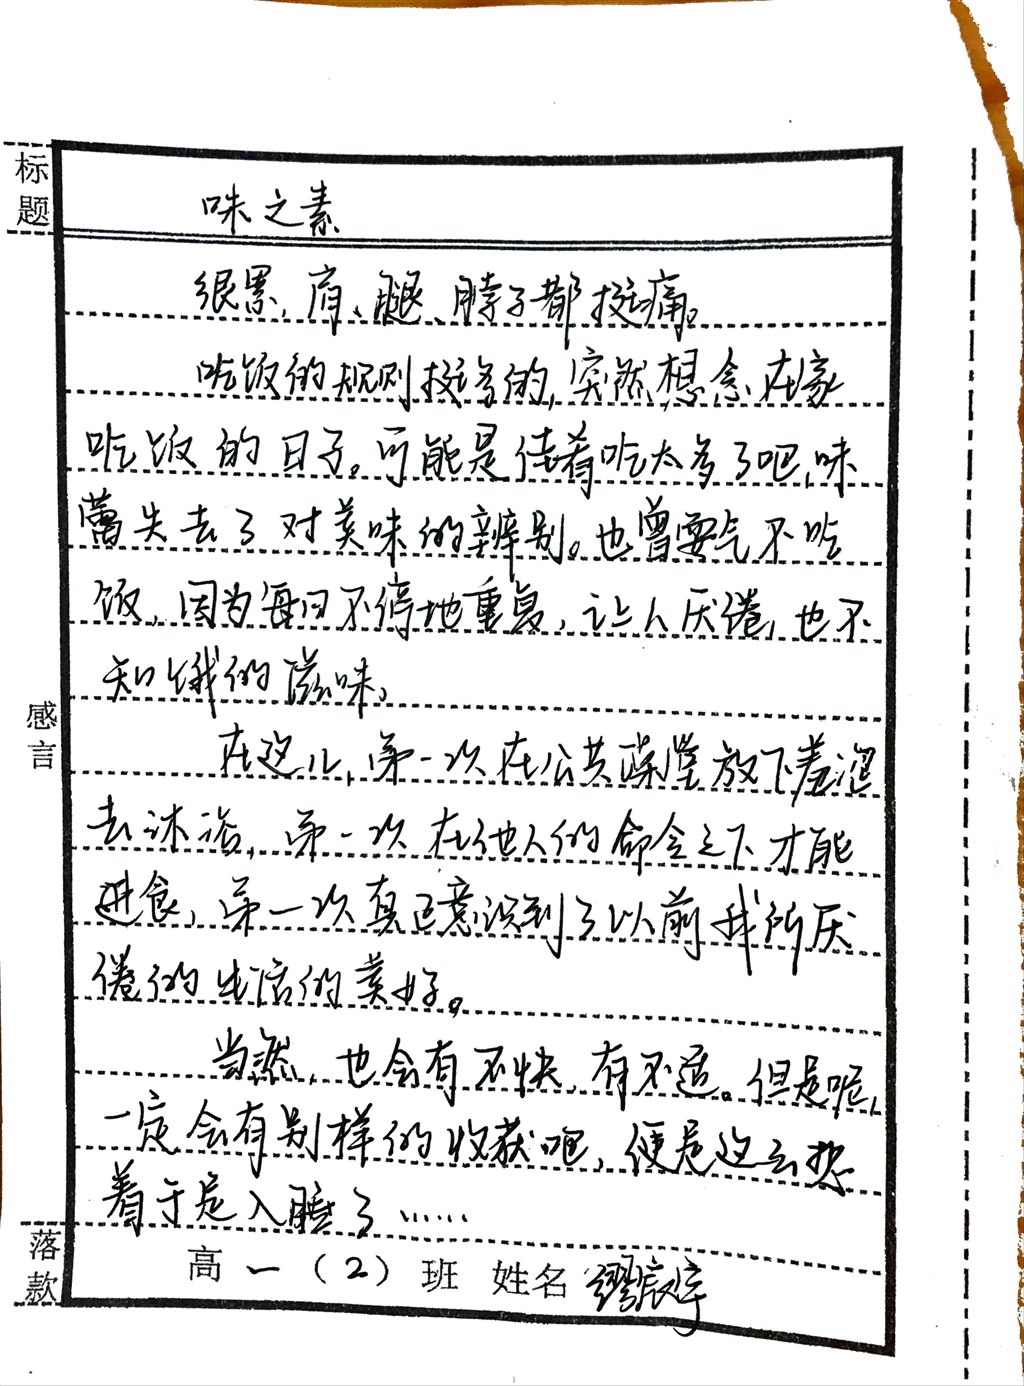 标题
味之素
很累，肩、腿、脖子都挺痛。
吃饭的规则挺多的，突然想念在家
吃饭的日子。可能是佳肴吃太多了吧，味
蕾失去了对美味的辨别。也曾耍气不吃
饭，因为每日不停地重复，让人厌倦，也不
知饿的滋味。
感言
在这儿，第一次在公共澡堂放下羞涩
去沐浴，第一次在他人的命令之下才能
进食，第一次真正意识到了以前我所厌
倦的生活的美好。
当然，也会有不快，有不适。但是呢，
一定会有别样的收获吧，便是这么想
着于是入睡了……
落款
高一（2）班 姓名 缪宸宇